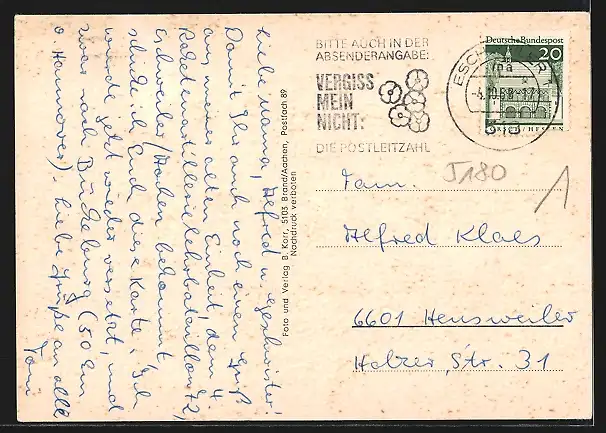 Liebe Mama, Alfred u. Geschwister!
Damit Ihr auch noch einen Gruß
aus meiner alten Einheit, dem 4.
Raketenartillerielehrbataillon 72,
Eschweiler/Aachen bekommt
schicke ich Euch diese Karte. Ich
werde jetzt wieder versetzt, und
zwar nach Bückeburg (50 km
v. Hannover). Liebe Grüße an alle
Foto und Verlag B. Korr, 5103 Brand/Aachen, Postfach 89
Nachdruck verboten
BITTE AUCH IN DER
ABSENDERANGABE:
VERGISS
MEIN
NICHT:
DIE POSTLEITZAHL
Deutsche Bundespost
20
LORSCH/HESSEN
J180
Fam.
Alfred Klaes
6601 Heusweiler
Holzer Str. 31